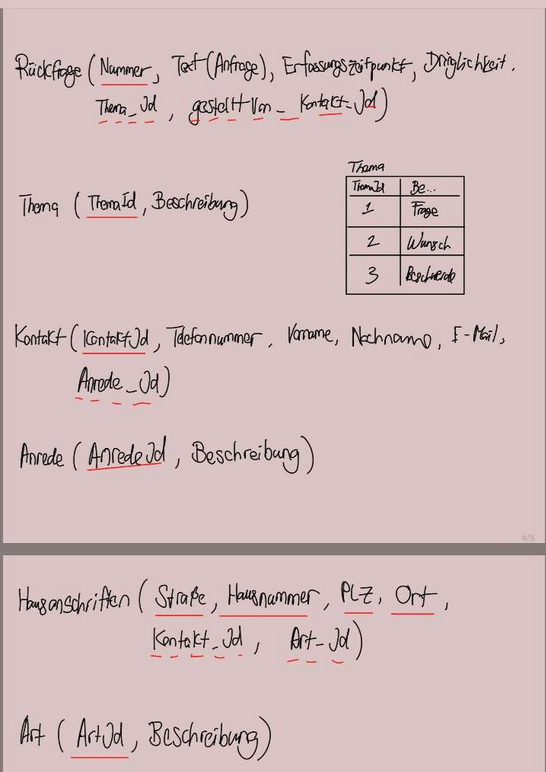 Rückfrage (Nummer, Text (Anfrage), Erfassungszeitpunkt, Dringlichkeit,
Thema_Id, gestellt von_Kontakt_Id)
Thema
Thema (ThemaId, Beschreibung)
ThemaId Be...
1 Frage
2 Wunsch
3 Beschwerde
Kontakt (KontaktId, Telefonnummer, Vorname, Nachname, E-Mail,
Anrede_Id)
Anrede (AnredeId, Beschreibung)
4/5
Hausanschriften (Straße, Hausnummer, PLZ, Ort,
Kontakt_Id, Art_Id)
Art (ArtId, Beschreibung)